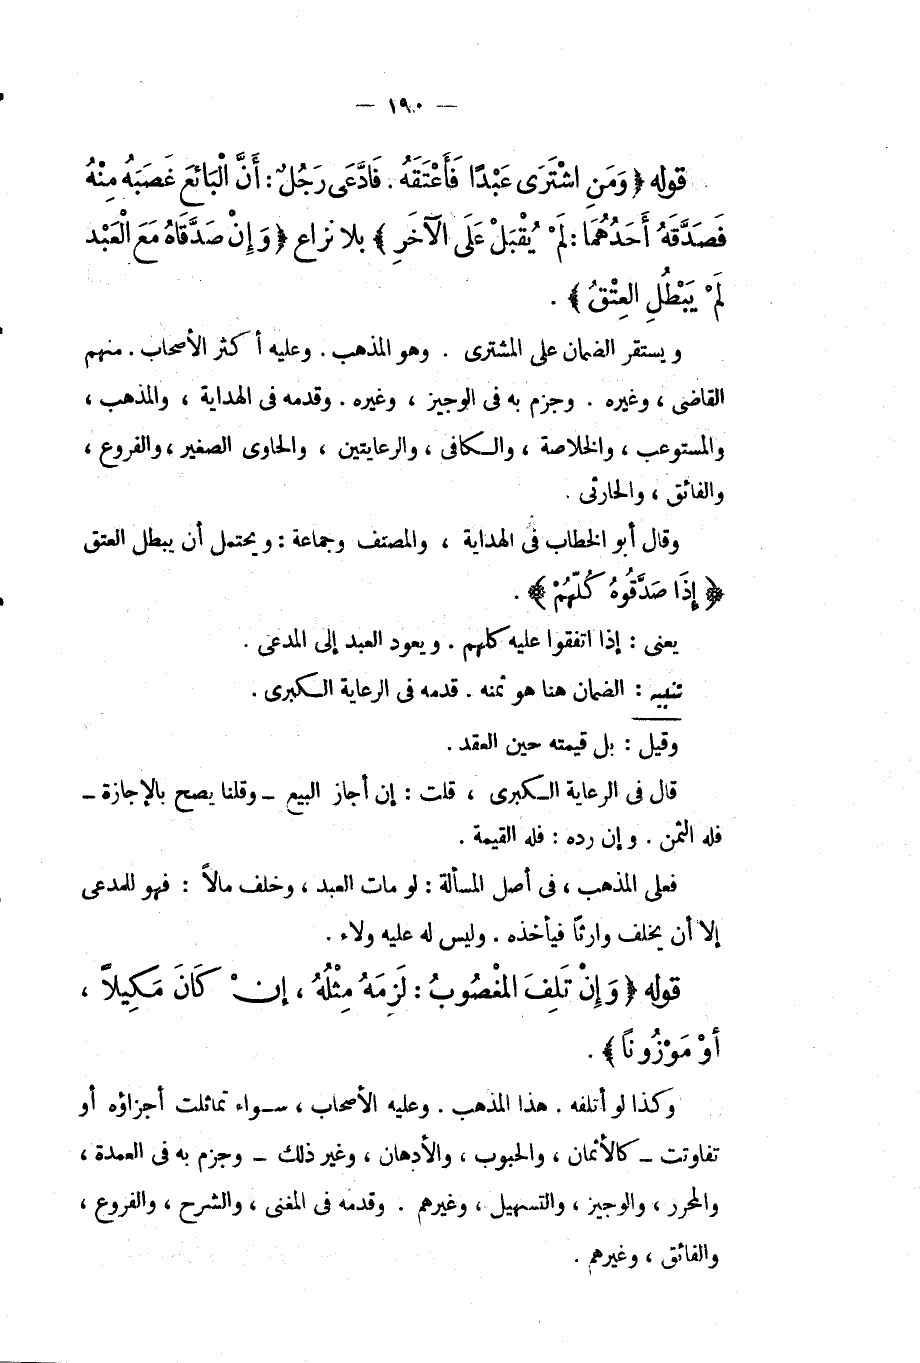 — ١٩٠ —
قوله ﴿ وَمَنِ اشْتَرَى عَبْدًا فَأَعْتَقَهُ . فَادَّعَى رَجُلٌ : أَنَّ الْبَائِعَ غَصَبَهُ مِنْهُ
فَصَدَّقَهُ أَحَدُهُمَا : لَمْ يُقْبَلْ عَلَى الْآخَرِ ﴾ بلا نزاع ﴿ وَإِنْ صَدَّقَاهُ مَعَ الْعَبْدِ
لَمْ يَبْطُلِ العِتْقُ ﴾ .
ويستقر الضمان على المشترى . وهو المذهب . وعليه أكثر الأصحاب . منهم
القاضى ، وغيره . وجزم به فى الوجيز ، وغيره . وقدمه فى الهداية ، والمذهب ،
والمستوعب ، والخلاصة ، والكافى ، والرعايتين ، والحاوى الصغير ، والفروع ،
والفائق ، والحارثى .
وقال أبو الخطاب فى الهداية ، والمصنف وجماعة : ويحتمل أن يبطل العتق
﴿ إِذَا صَدَّقُوهُ كُلُّهُمْ ﴾ .
يعنى : إذا اتفقوا عليه كلهم . ويعود العبد إلى المدعى .
تنبيه : الضمان هنا هو ثمنه . قدمه فى الرعاية الكبرى .
وقيل : بل قيمته حين العقد .
قال فى الرعاية الكبرى ، قلت : إن أجاز البيع – وقلنا يصح بالإجازة –
فله الثمن . وإن رده : فله القيمة .
فعلى المذهب ، فى أصل المسألة : لو مات العبد ، وخلف مالاً : فهو للمدعى
إلا أن يخلف وارثًا فيأخذه . وليس له عليه ولاء .
قوله ﴿ وَإِنْ تَلِفَ المَغْصُوبُ : لَزِمَهُ مِثْلُهُ ، إِن كَانَ مَكِيلاً ،
أَوْ مَوْزُونًا ﴾ .
وكذا لو أتلفه . هذا المذهب . وعليه الأصحاب ، سواء تماثلت أجزاؤه أو
تفاوتت – كالأثمان ، والحبوب ، والأدهان ، وغير ذلك – وجزم به فى العمدة ،
والمحرر ، والوجيز ، والتسهيل ، وغيرهم . وقدمه فى المغنى ، والشرح ، والفروع ،
والفائق ، وغيرهم .